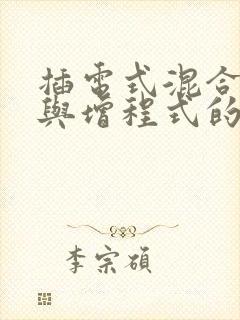 插電式混合
與增程式的
李宗碩